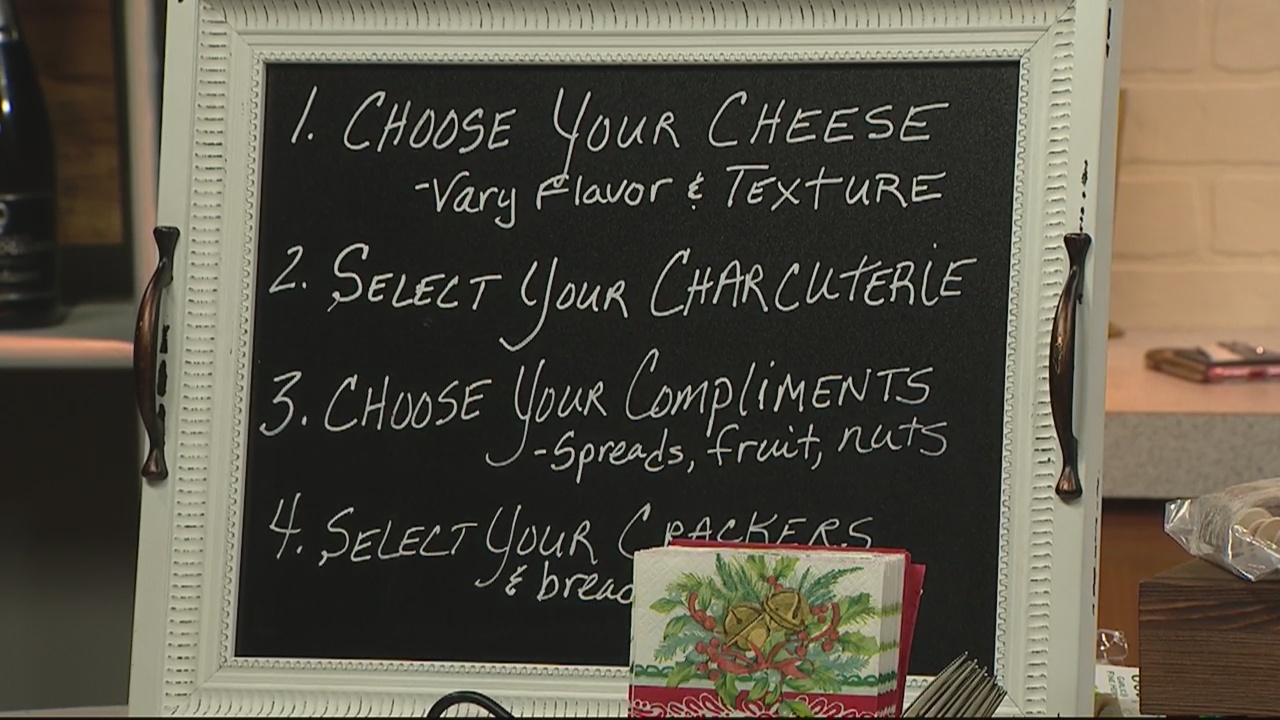 1. CHOOSE YOUR CHEESE
-Vary Flavor & TEXTURE
2. SELECT YOUR CHARCUTERIE
3. CHOOSE YOUR COMPLIMENTS
-Spreads, fruit, nuts
4. SELECT YOUR CRACKERS
& bread